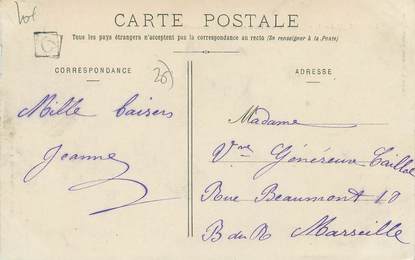 CARTE POSTALE
Tous les pays étrangers n'acceptent pas la correspondance au recto (Se renseigner à la Poste)
CORRESPONDANCE
ADRESSE
Mille baisers
Jeanne
Madame
Vve Généreux
Rue Beaumont 10
B du R Marseille